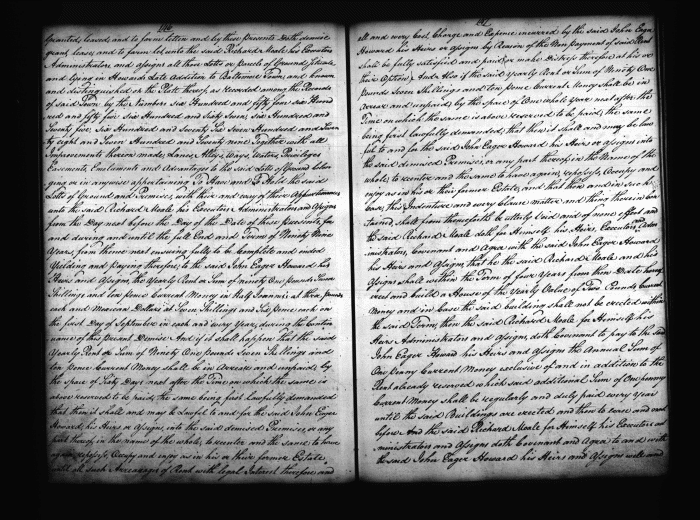 146
Granted leased and to farm letten and by these Presents Doth demise
grant, lease, and to farm let unto the said Richard Meale his Executors
Administrators and Assigns all those Lots or Parcels of Ground Situate
and Lying in Howards late Addition to Baltimore Town, and known
and distinguished on the Plat thereof, as recorded among the Records
of said Town by the Numbers Six Hundred and fifty four Six Hund
red and fifty five Six Hundred and Sixty Seven, Six Hundred and
Seventy five, Six Hundred and Seventy Six Seven Hundred and Seven
ty eight and Seven Hundred and Seventy nine Together with all
Improvements thereon made, Lanes, Alleys, Ways, Waters, Privileges
Easements, Emoluments and Advantages to the said Lotts of Ground belon
ging or in anywise appertaining To Have and To Hold the said
Lotts of Ground and Premises, with their and every of their Appurtenances,
unto the said Richard Meale his Executors Administrators, and Assigns
from the Day next before the Day of the Date of these presents, for
and during and until the full End and Term of Ninety Nine
Years from thence next ensuing fully to be Complete and ended
Yielding and paying therefore, to the said John Eager Howard his
Heirs and Assigns, the Yearly Rent or Sum of ninety One pounds Seven
Shillings and ten pence Current Money in Half Joannes at three pounds
each and Mexican Dollars at Seven Shillings and Six pence each on
the first Day of September in each and every Year, during the Contin
uance of this present Demise And if it shall happen that the said
Yearly Rent or Sum of Ninety One pounds Seven Shillings and
ten pence Current Money shall be in Arrear and unpaid by
the space of Sixty Days next after the Time on which the same is
above reserved to be paid, the same being first lawfully demanded
that then it shall and may be lawful to and for the said John Eager
Howard, his Heirs or Assigns, into the said demised Premises, or any
part thereof, in the name of the whole, to reenter and the same to have
again, repossess, Occupy and enjoy as in his or their former Estate
until all such Arrearages of Rent with legal Interest therefore and
147
all and every Cost, Charge and Expence incurred by the said John Eager
Howard his Heirs or Assigns by Reason of the Non payment of said Rent
shall be fully satisfied and paid, or make Distress therefore at his or
their Option And Also if the said Yearly Rent or Sum of Ninety One
pounds Seven Shillings and ten pence Current Money shall be in
Arrear and unpaid by the space of One whole Year next after the
Time on which the same is above reserved to be paid, the same
being first lawfully demanded, that then it shall and may be law
ful to and for the said John Eager Howard his Heirs or Assigns into
the said demised Premises, or any part thereof in the Name of the
whole, to reenter and the same to have again, repossess, Occupy and
enjoy as in his or their former Estate, and that then and in such
Case, this Indenture and every Clause matter and thing therein con
tained, shall from thenceforth be utterly Void and of none effect and
the said Richard Meale doth for himself his Heirs, Executors, Adm
inistrators, Covenant and Agree with the said John Eager Howard
his Heirs and Assigns, that he the said Richard Meale and his
Assigns shall within the Term of four Years from the Date hereof
erect and build a House of the Yearly Value of Two Pounds Current
Money and in Case the said building shall not be erected within
the said Term, then the said Richard Meale, for Himself his
Heirs Administrators and Assigns, doth Covenant to pay to the said
John Eager Howard his Heirs and Assigns the Annual Sum of
One penny Current Money exclusive of and in addition to the
Rent already reserved which said additional Sum of One penny
Current Money shall be regularly and duly paid every Year
until the said Buildings are erected and then to cease and not
before And the said Richard Meale for Himself, his Executors Ad
ministrators and Assigns doth Covenant and Agree to and with
the said John Eager Howard his Heirs and Assigns well and